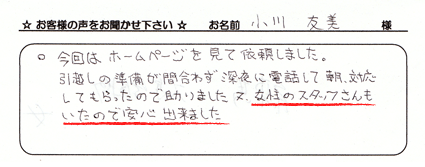 ☆ お客様の声をお聞かせ下さい ☆ お名前 小川 友美 様
○ 今回は ホームページを見て依頼しました。
引越しの準備が間合わず深夜に電話して朝、対応
してもらったので助りました 又、女性のスタッフさんも
いたので安心 出来ました